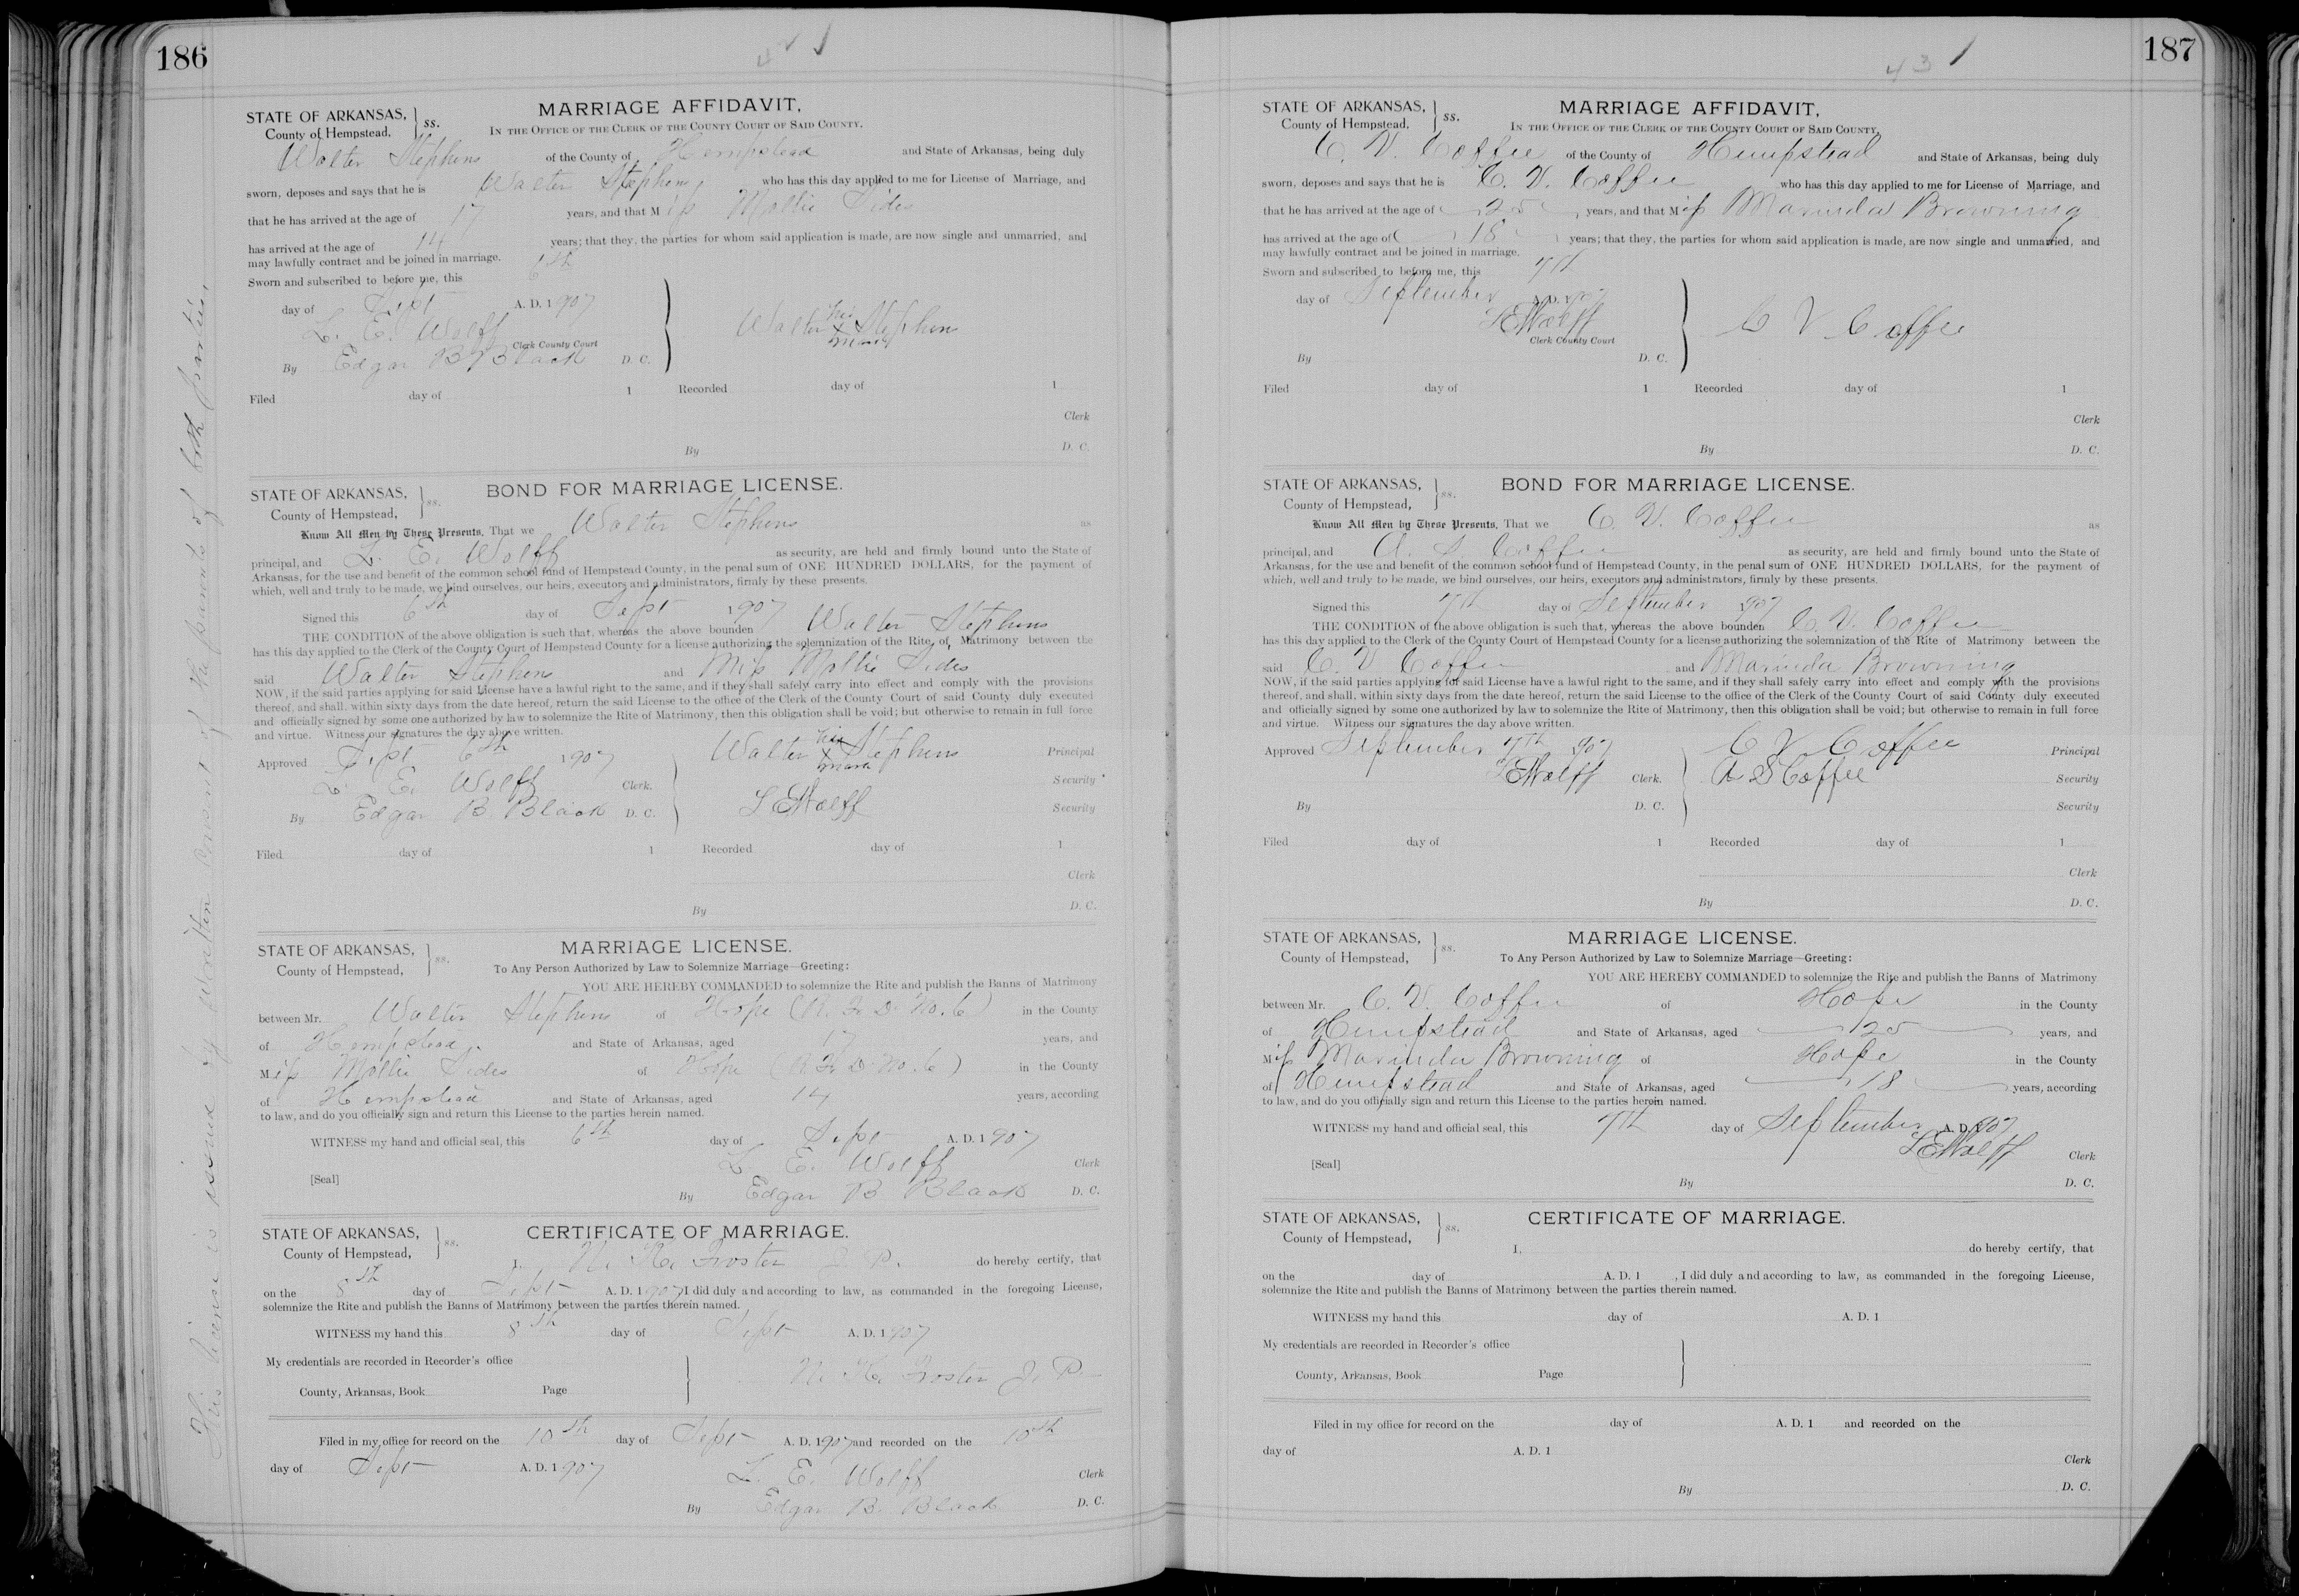 186
STATE OF ARKANSAS, } ss.
County of Hempstead,
MARRIAGE AFFIDAVIT,
IN THE OFFICE OF THE CLERK OF THE COUNTY COURT OF SAID COUNTY.
Walter Stephens of the County of Hempstead and State of Arkansas, being duly
sworn, deposes and says that he is Walter Stephens, who has this day applied to me for License of Marriage, and
that he has arrived at the age of 17 years, and that Miss Mollie Sides
has arrived at the age of 14 years; that they, the parties for whom said application is made, are now single and unmarried, and
may lawfully contract and be joined in marriage.
Sworn and subscribed to before me, this 6th
day of Sept A. D. 1907
L. E. Wolff Clerk County Court
By Edgar B Black D. C.
Walter his x mark Stephens
Filed day of 1 Recorded day of 1
Clerk
By D. C.
STATE OF ARKANSAS, } ss.
County of Hempstead,
BOND FOR MARRIAGE LICENSE.
Know All Men by These Presents, That we Walter Stephens as
principal, and L. E. Wolff as security, are held and firmly bound unto the State of
Arkansas, for the use and benefit of the common school fund of Hempstead County, in the penal sum of ONE HUNDRED DOLLARS, for the payment of
which, well and truly to be made, we bind ourselves, our heirs, executors and administrators, firmly by these presents.
Signed this 6th day of Sept 1907
THE CONDITION of the above obligation is such that, whereas the above bounden Walter Stephens
has this day applied to the Clerk of the County Court of Hempstead County for a license authorizing the solemnization of the Rite of Matrimony between the
said Walter Stephens and Miss Mollie Sides
NOW, if the said parties applying for said License have a lawful right to the same, and if they shall safely carry into effect and comply with the provisions
thereof, and shall, within sixty days from the date hereof, return the said License to the office of the Clerk of the County Court of said County duly executed
and officially signed by some one authorized by law to solemnize the Rite of Matrimony, then this obligation shall be void; but otherwise to remain in full force
and virtue. Witness our signatures the day above written.
Approved Sept 6th 1907
L. E. Wolff Clerk.
By Edgar B. Black D. C.
Walter his x mark Stephens Principal
Security
L E Wolff Security
Filed day of 1 Recorded day of 1
Clerk
By D. C.
STATE OF ARKANSAS, } ss.
County of Hempstead,
MARRIAGE LICENSE.
To Any Person Authorized by Law to Solemnize Marriage—Greeting:
YOU ARE HEREBY COMMANDED to solemnize the Rite and publish the Banns of Matrimony
between Mr. Walter Stephens of Hope (R. F. D. No. 6) in the County
of Hempstead and State of Arkansas, aged 17 years, and
Miss Mollie Sides of Hope (R. F. D. No. 6) in the County
of Hempstead and State of Arkansas, aged 14 years, according
to law, and do you officially sign and return this License to the parties herein named.
WITNESS my hand and official seal, this 6th day of Sept A. D. 1907
L. E. Wolff Clerk
[Seal]
By Edgar B Black D. C.
STATE OF ARKANSAS, } ss.
County of Hempstead,
CERTIFICATE OF MARRIAGE.
I, Foster J. P. do hereby certify, that
on the 8th day of Sept A. D. 1907 I did duly and according to law, as commanded in the foregoing License,
solemnize the Rite and publish the Banns of Matrimony between the parties therein named.
WITNESS my hand this 8th day of Sept A. D. 1907
My credentials are recorded in Recorder's office
Foster J. P.
County, Arkansas, Book Page
Filed in my office for record on the 10th day of Sept A. D. 1907 and recorded on the 10th
day of Sept A. D. 1907
L. E. Wolff Clerk
By Edgar B. Black D. C.
This license is issued by written consent of the parents of both parties.
187
43
STATE OF ARKANSAS, } ss.
County of Hempstead,
MARRIAGE AFFIDAVIT,
IN THE OFFICE OF THE CLERK OF THE COUNTY COURT OF SAID COUNTY,
C. V. Coffee of the County of Hempstead and State of Arkansas, being duly
sworn, deposes and says that he is C. V. Coffee who has this day applied to me for License of Marriage, and
that he has arrived at the age of 25 years, and that Miss Marinda Browning
has arrived at the age of 18 years; that they, the parties for whom said application is made, are now single and unmarried, and
may lawfully contract and be joined in marriage.
Sworn and subscribed to before me, this 7th
day of September A. D. 1907
L E Wolff
Clerk County Court
By D. C.
C V Coffee
Filed day of 1 Recorded day of 1
Clerk
By D. C.
STATE OF ARKANSAS, } ss.
County of Hempstead,
BOND FOR MARRIAGE LICENSE.
Know All Men by These Presents, That we C. V. Coffee as
principal, and A. S. Coffee as security, are held and firmly bound unto the State of
Arkansas, for the use and benefit of the common school fund of Hempstead County, in the penal sum of ONE HUNDRED DOLLARS, for the payment of
which, well and truly to be made, we bind ourselves, our heirs, executors and administrators, firmly by these presents.
Signed this 7th day of September 1907
THE CONDITION of the above obligation is such that, whereas the above bounden C. V. Coffee
has this day applied to the Clerk of the County Court of Hempstead County for a license authorizing the solemnization of the Rite of Matrimony between the
said C. V Coffee and Marinda Browning
NOW, if the said parties applying for said License have a lawful right to the same, and if they shall safely carry into effect and comply with the provisions
thereof, and shall, within sixty days from the date hereof, return the said License to the office of the Clerk of the County Court of said County duly executed
and officially signed by some one authorized by law to solemnize the Rite of Matrimony, then this obligation shall be void; but otherwise to remain in full force
and virtue. Witness our signatures the day above written.
Approved September 7th 1907
L E Wolff Clerk.
By D. C.
C V Coffee Principal
A S Coffee Security
Security
Filed day of 1 Recorded day of 1
Clerk
By D. C.
STATE OF ARKANSAS, } ss.
County of Hempstead,
MARRIAGE LICENSE.
To Any Person Authorized by Law to Solemnize Marriage—Greeting:
YOU ARE HEREBY COMMANDED to solemnize the Rite and publish the Banns of Matrimony
between Mr. C. V. Coffee of Hope in the County
of Hempstead and State of Arkansas, aged 25 years, and
Miss Marinda Browning of Hope in the County
of Hempstead and State of Arkansas, aged 18 years, according
to law, and do you officially sign and return this License to the parties herein named.
WITNESS my hand and official seal, this 7th day of September A. D. 1907
L E Wolff Clerk
[Seal]
By D. C.
STATE OF ARKANSAS, } ss.
County of Hempstead,
CERTIFICATE OF MARRIAGE.
I, do hereby certify, that
on the day of A. D. 1 , I did duly and according to law, as commanded in the foregoing License,
solemnize the Rite and publish the Banns of Matrimony between the parties therein named.
WITNESS my hand this day of A. D. 1
My credentials are recorded in Recorder's office
County, Arkansas, Book Page
Filed in my office for record on the day of A. D. 1 and recorded on the
day of A. D. 1
Clerk
By D. C.